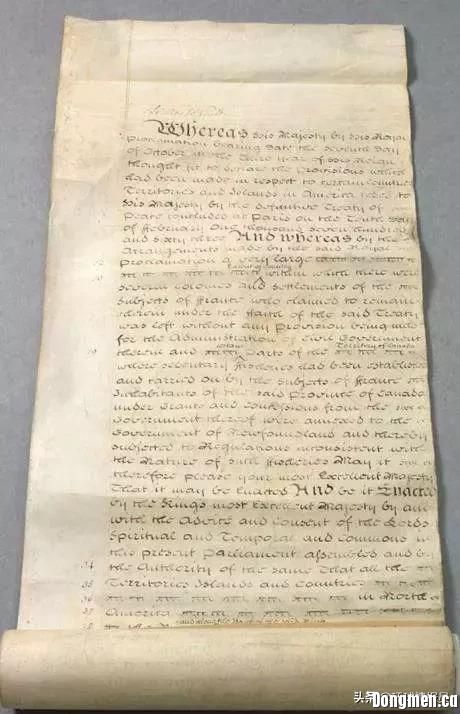 Whereas his Majesty by his Royal
Proclamation bearing Date the seventh Day
of October in the Third Year of his Reign
thought fit to declare the Provisions which
had been made in respect to certain Countries
Territories and Islands in America ceded to
his Majesty by the definitive Treaty of
Peace concluded at Paris on the Tenth Day
of February One thousand seven hundred
and sixty three And whereas by the
Arrangements made by the said Royal
Proclamation a very large
Extent of Country
within which there were
several Colonies and Settlements of the
Subjects of France who claimed to remain
therein under the Faith of the said Treaty
was left without any Provision being made
for the Administration of Civil Government
certain Territory of Canada
19 therein and Parts of the
where sedentary Fisheries had been established
and carried on by the Subjects of France
Inhabitants of the said Province of Canada
under Grants and Concessions from the
Government thereof were annexed to the
Government of Newfoundland and thereby
subjected to Regulations inconsistent with
the Nature of such Fisheries May it
therefore please your most Excellent Majesty
That it may be Enacted And be it Enacted
by the Kings most Excellent Majesty by and
with the Advice and Consent of the Lords
Spiritual and Temporal and Commons in
this present Parliament assembled and by
34 the Authority of the same That all the
35 Territories Islands and Countries
36 in North
37 America
38
Dongmen.ca